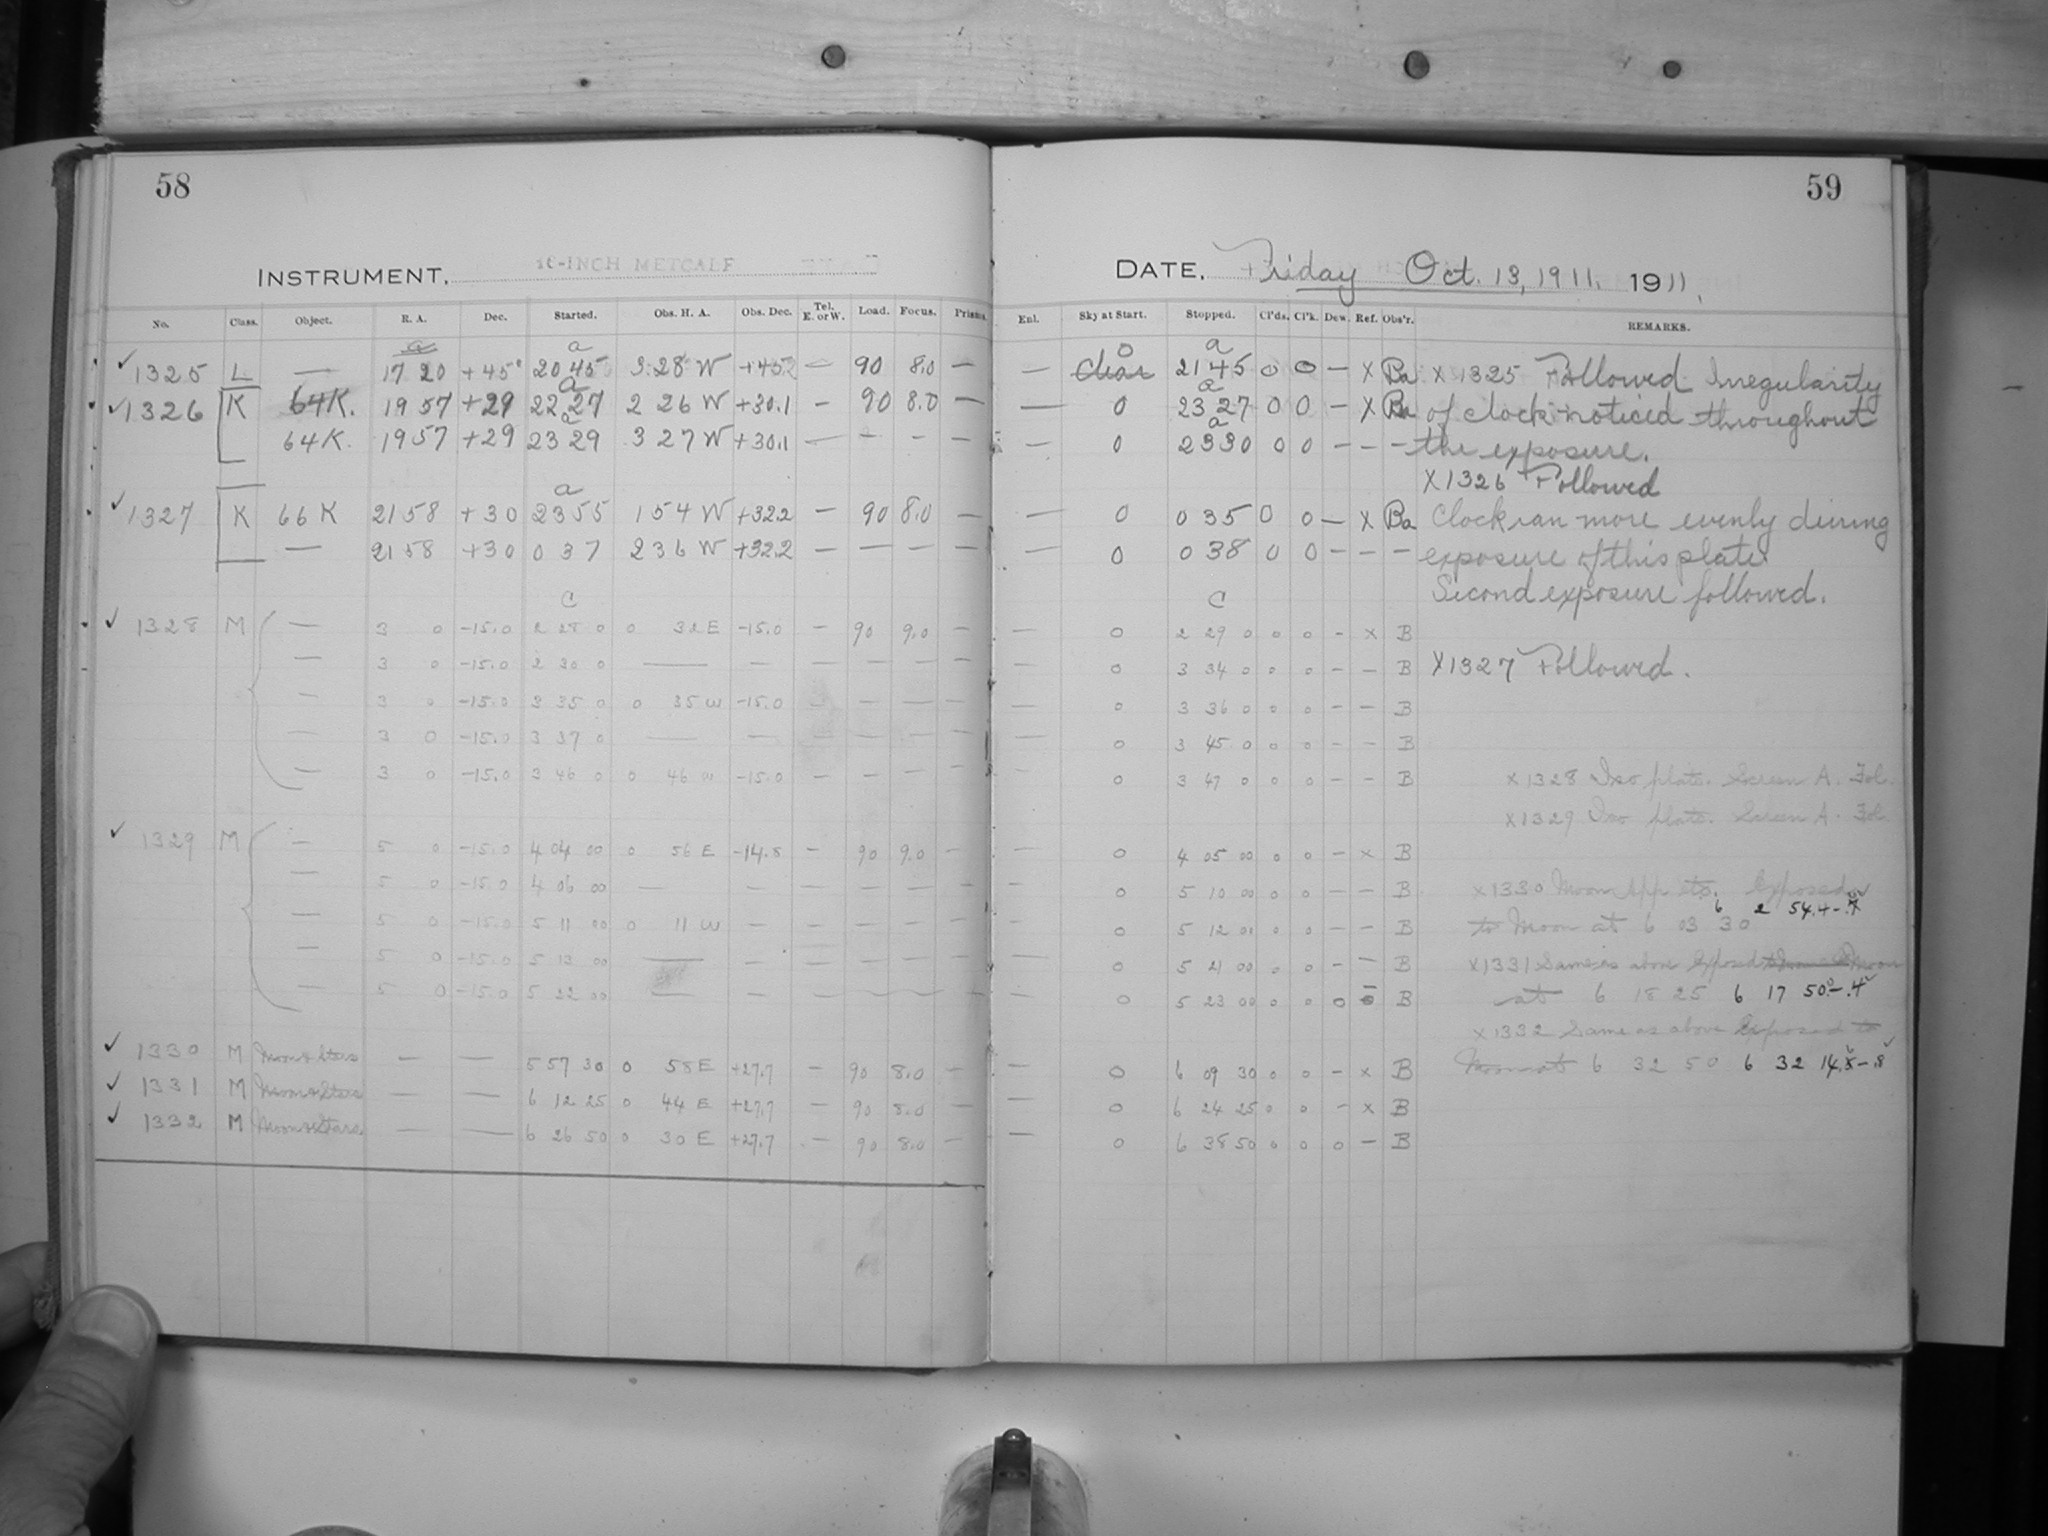 58
INSTRUMENT, 16-INCH METCALF
No. Class. Object. R. A. Dec. Started. Obs. H. A. Obs. Dec. Tel. E. or W. Load. Focus. Prisms.
a a
1325 L — 17 20 +45° 20 45 3 28 W +45.2 — 90 8.0 —
a
1326 K 64K. 19 57 +29 22 27 2 26 W +30.1 — 90 8.0 —
a
64K. 19 57 +29 23 29 3 27 W +30.1 — — — —
a
1327 K 66 K 21 58 +30 23 55 1 54 W +32.2 — 90 8.0 —
— 21 58 +30 0 37 2 36 W +32.2 — — — —
C
1328 M — 3 0 -15.0 2 28 0 0 32 E -15.0 — 90 9.0 —
— 3 0 -15.0 2 30 0 — — — — — —
— 3 0 -15.0 3 35 0 0 35 W -15.0 — — — —
— 3 0 -15.0 3 37 0 — — — — — —
— 3 0 -15.0 3 46 0 0 46 W -15.0 — — — —
1329 M — 5 0 -15.0 4 04 00 0 56 E -14.8 — 90 9.0 —
— 5 0 -15.0 4 06 00 — — — — — —
— 5 0 -15.0 5 11 00 0 11 W — — — — —
— 5 0 -15.0 5 13 00 — — — — — —
— 5 0 -15.0 5 22 00 — — — — — —
1330 M Moon & Stars — — 5 57 30 0 58 E +27.7 — 90 8.0 —
1331 M Moon & Stars — — 6 12 25 0 44 E +27.7 — 90 8.0 —
1332 M Moon & Stars — — 6 26 50 0 30 E +27.7 — 90 8.0 —
59
DATE, Friday Oct. 13, 1911. 1911.
Enl. Sky at Start. Stopped. Cl'ds. Cl'k. Dew. Ref. Obs'r. REMARKS.
0 a
— Clear 21 45 0 0 — X Ba X 1325 Followed Irregularity
a
— 0 23 27 0 0 — X Ba of clock noticed throughout
a
— 0 23 30 0 0 — — — the exposure.
X1326 Followed
— 0 0 35 0 0 — X Ba Clock ran more evenly during
— 0 0 38 0 0 — — — exposure of this plate
Second exposure followed.
C
— 0 2 29 0 0 0 — X B
— 0 3 34 0 0 0 — — B X1327 Followed.
— 0 3 36 0 0 0 — — B
— 0 3 45 0 0 0 — — B
— 0 3 47 0 0 0 — — B X1328 Iso plate. Screen A. Fol.
X1329 Iso plate. Screen A. Fol.
— 0 4 05 00 0 0 — X B
— 0 5 10 00 0 0 — — B X1330 Moon App etc. Exposed
6 2 54.4 -
— 0 5 12 00 0 0 — — B to Moon at 6 03 30
— 0 5 21 00 0 0 — — B X1331 Same as above Exposed Moon
— 0 5 23 00 0 0 0 B at 6 18 25 6 17 50.0 -.4
X1332 Same as above Exposed to
— 0 6 09 30 0 0 — X B Moon at 6 32 50 6 32 14. -.8
— 0 6 24 25 0 0 — X B
— 0 6 38 50 0 0 0 — B